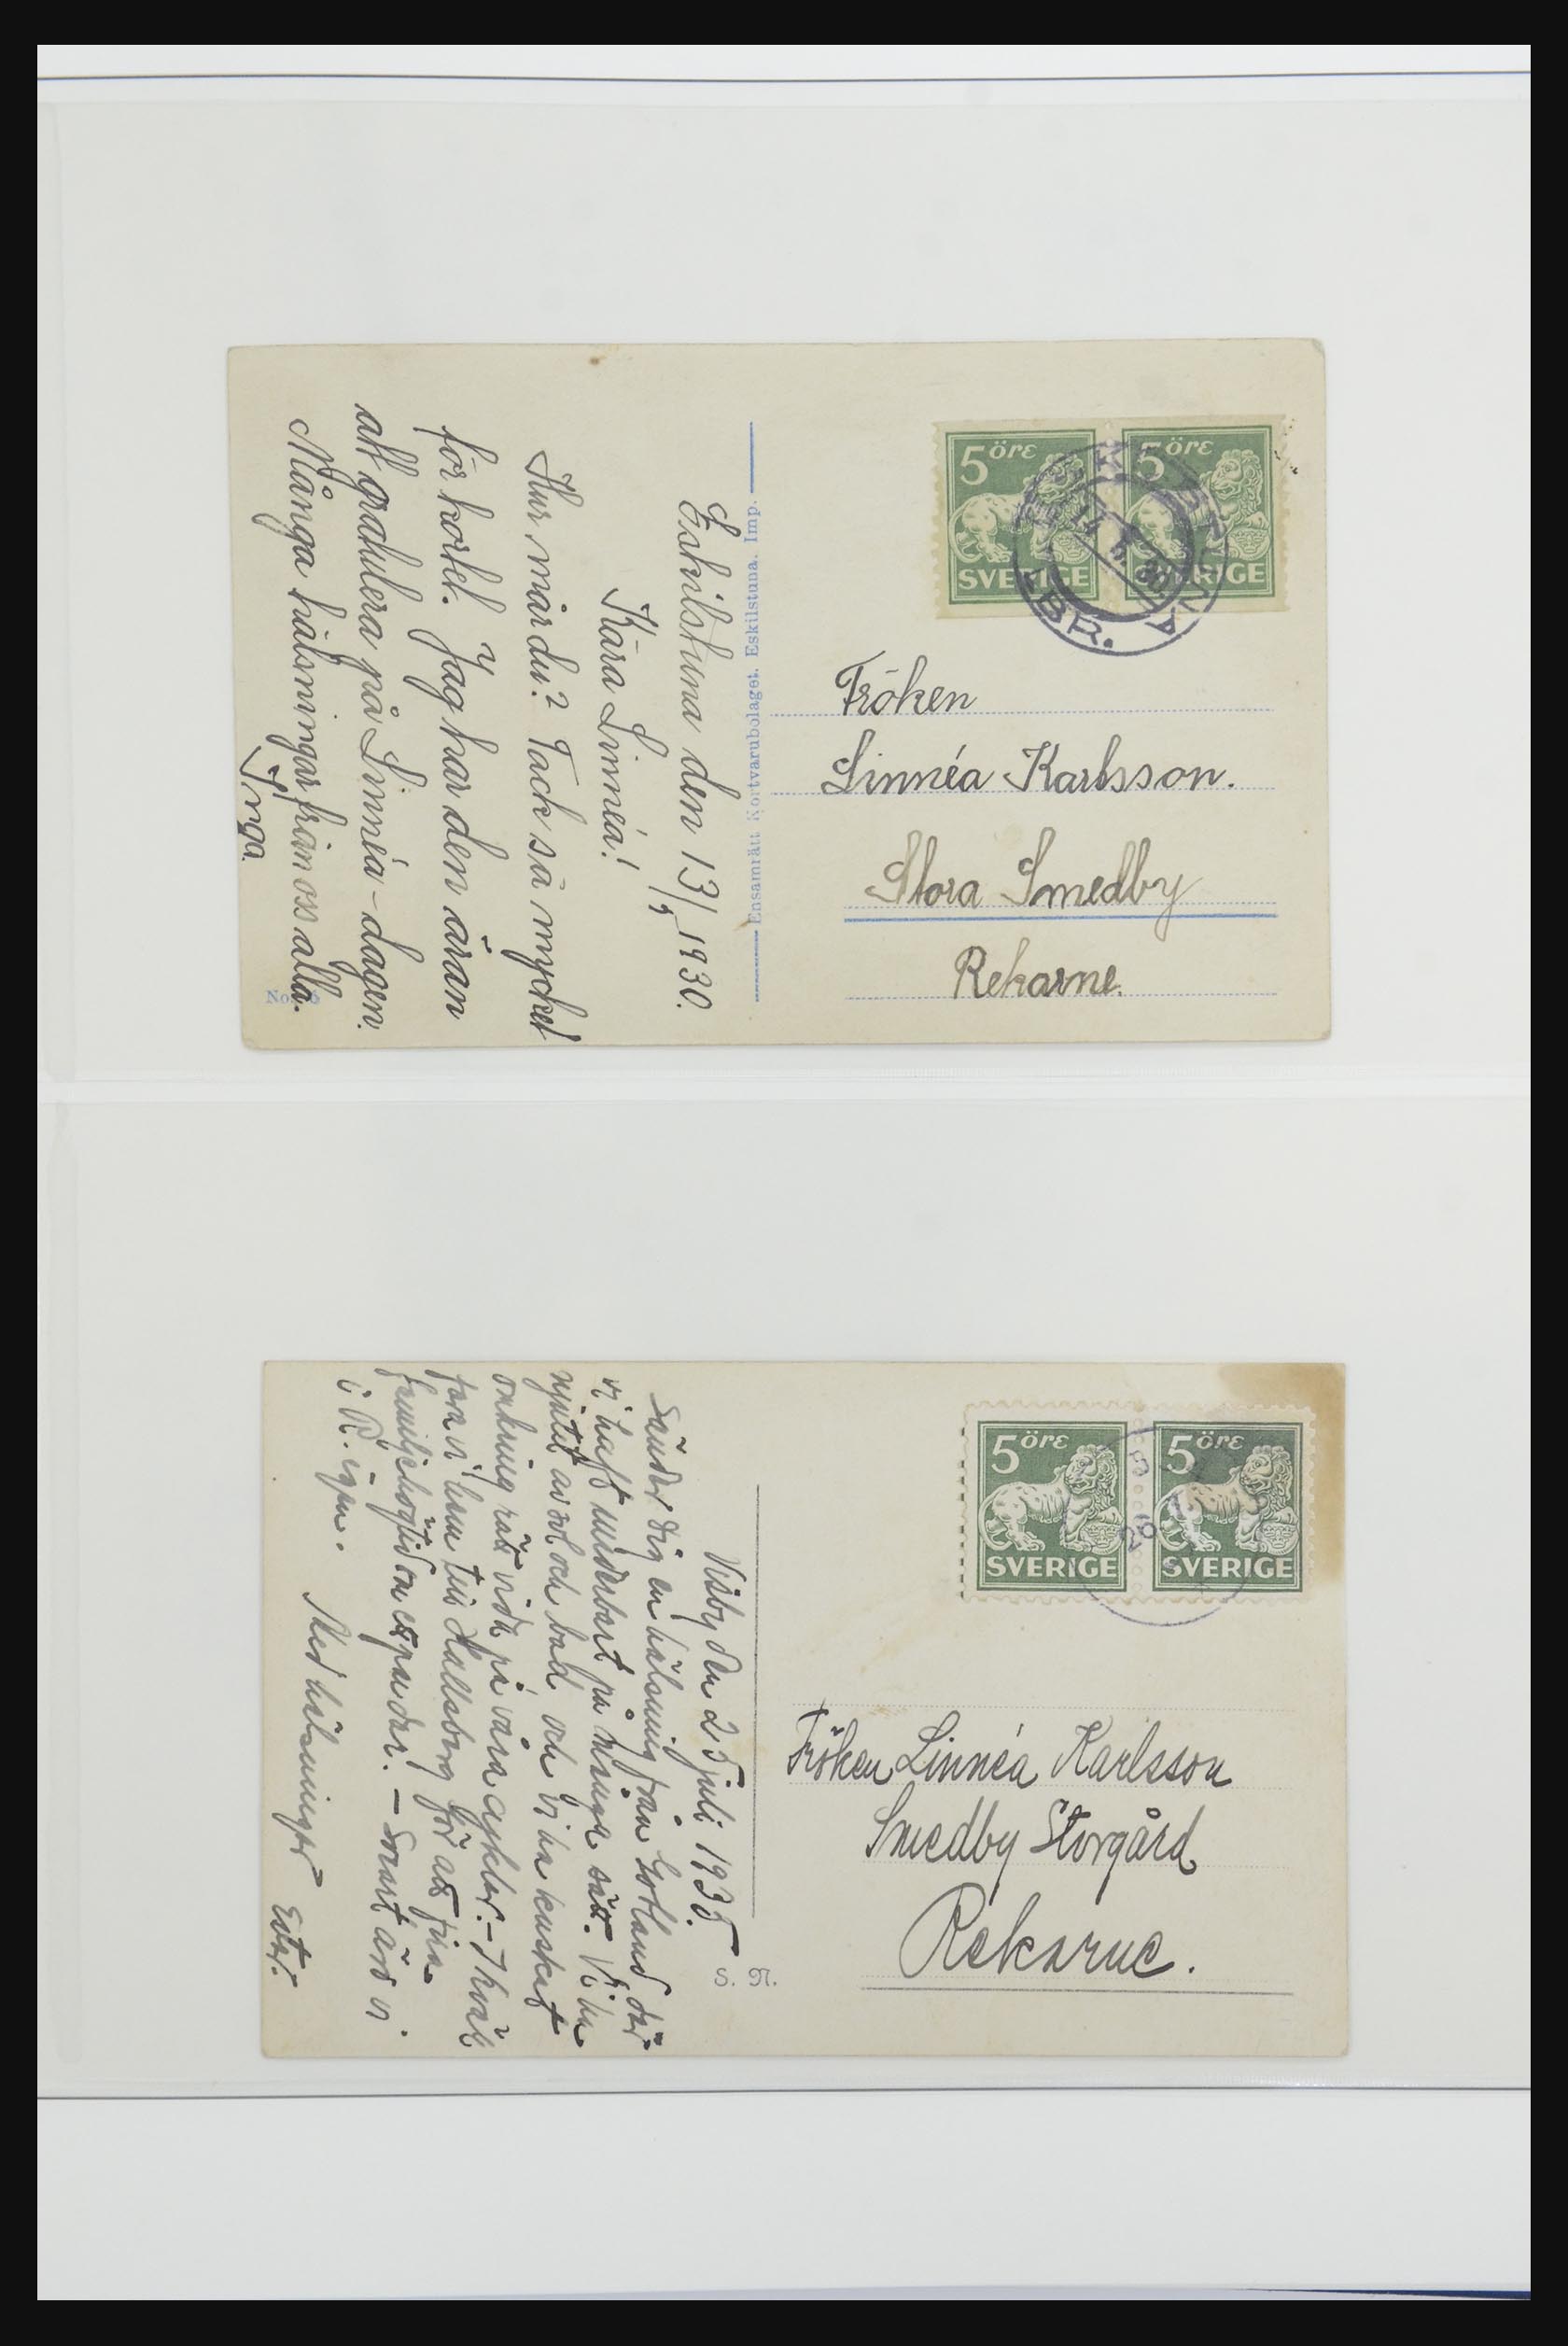 5 öre
SVERIGE
5 öre
SVERIGE
LBR.
Fröken
Linnéa Karlsson.
Stora Smedby
Rekarne.
Ensamrätt Kortvarubolaget. Eskilstuna. Imp.
Eskilstuna den 13/ 1930.
Kära Linnéa!
Hur mår du? Tack så mycket
för kortet. Jag har den äran
att gratulera på Linnéa-dagen.
Många hälsningar från oss alla.
Inga.
5 öre
SVERIGE
5 öre
SVERIGE
Fröken Linnéa Karlsson
Smedby Storgård
Rekarne.
S. N.
Visby den 25 juli 1935.
Sänder Dig en hälsning från Gotland där
vi haft underbart på många sätt. Vi ha
njutit av sol och bad och vi ha kuskat
omkring rätt vida på våra cyklar. – I kväll
fara vi hem till Hallsberg för att fira
familjehögtiden där. – Snart äro vi
i R. igen.
Med hälsningar
Ester.